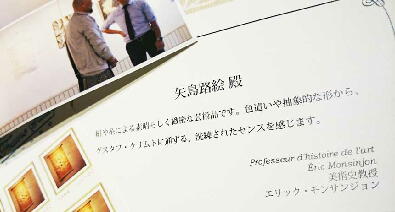 矢島路絵 殿
による素晴らしく緻密な芸術品です。色遣いや抽象的な形から、
グスタフ・クリムトに通ずる、洗練されたセンスを感じます。
Professeur d'histoire de l'art
Éric Monsinjon
美術史教授
エリック・モンサンジョン